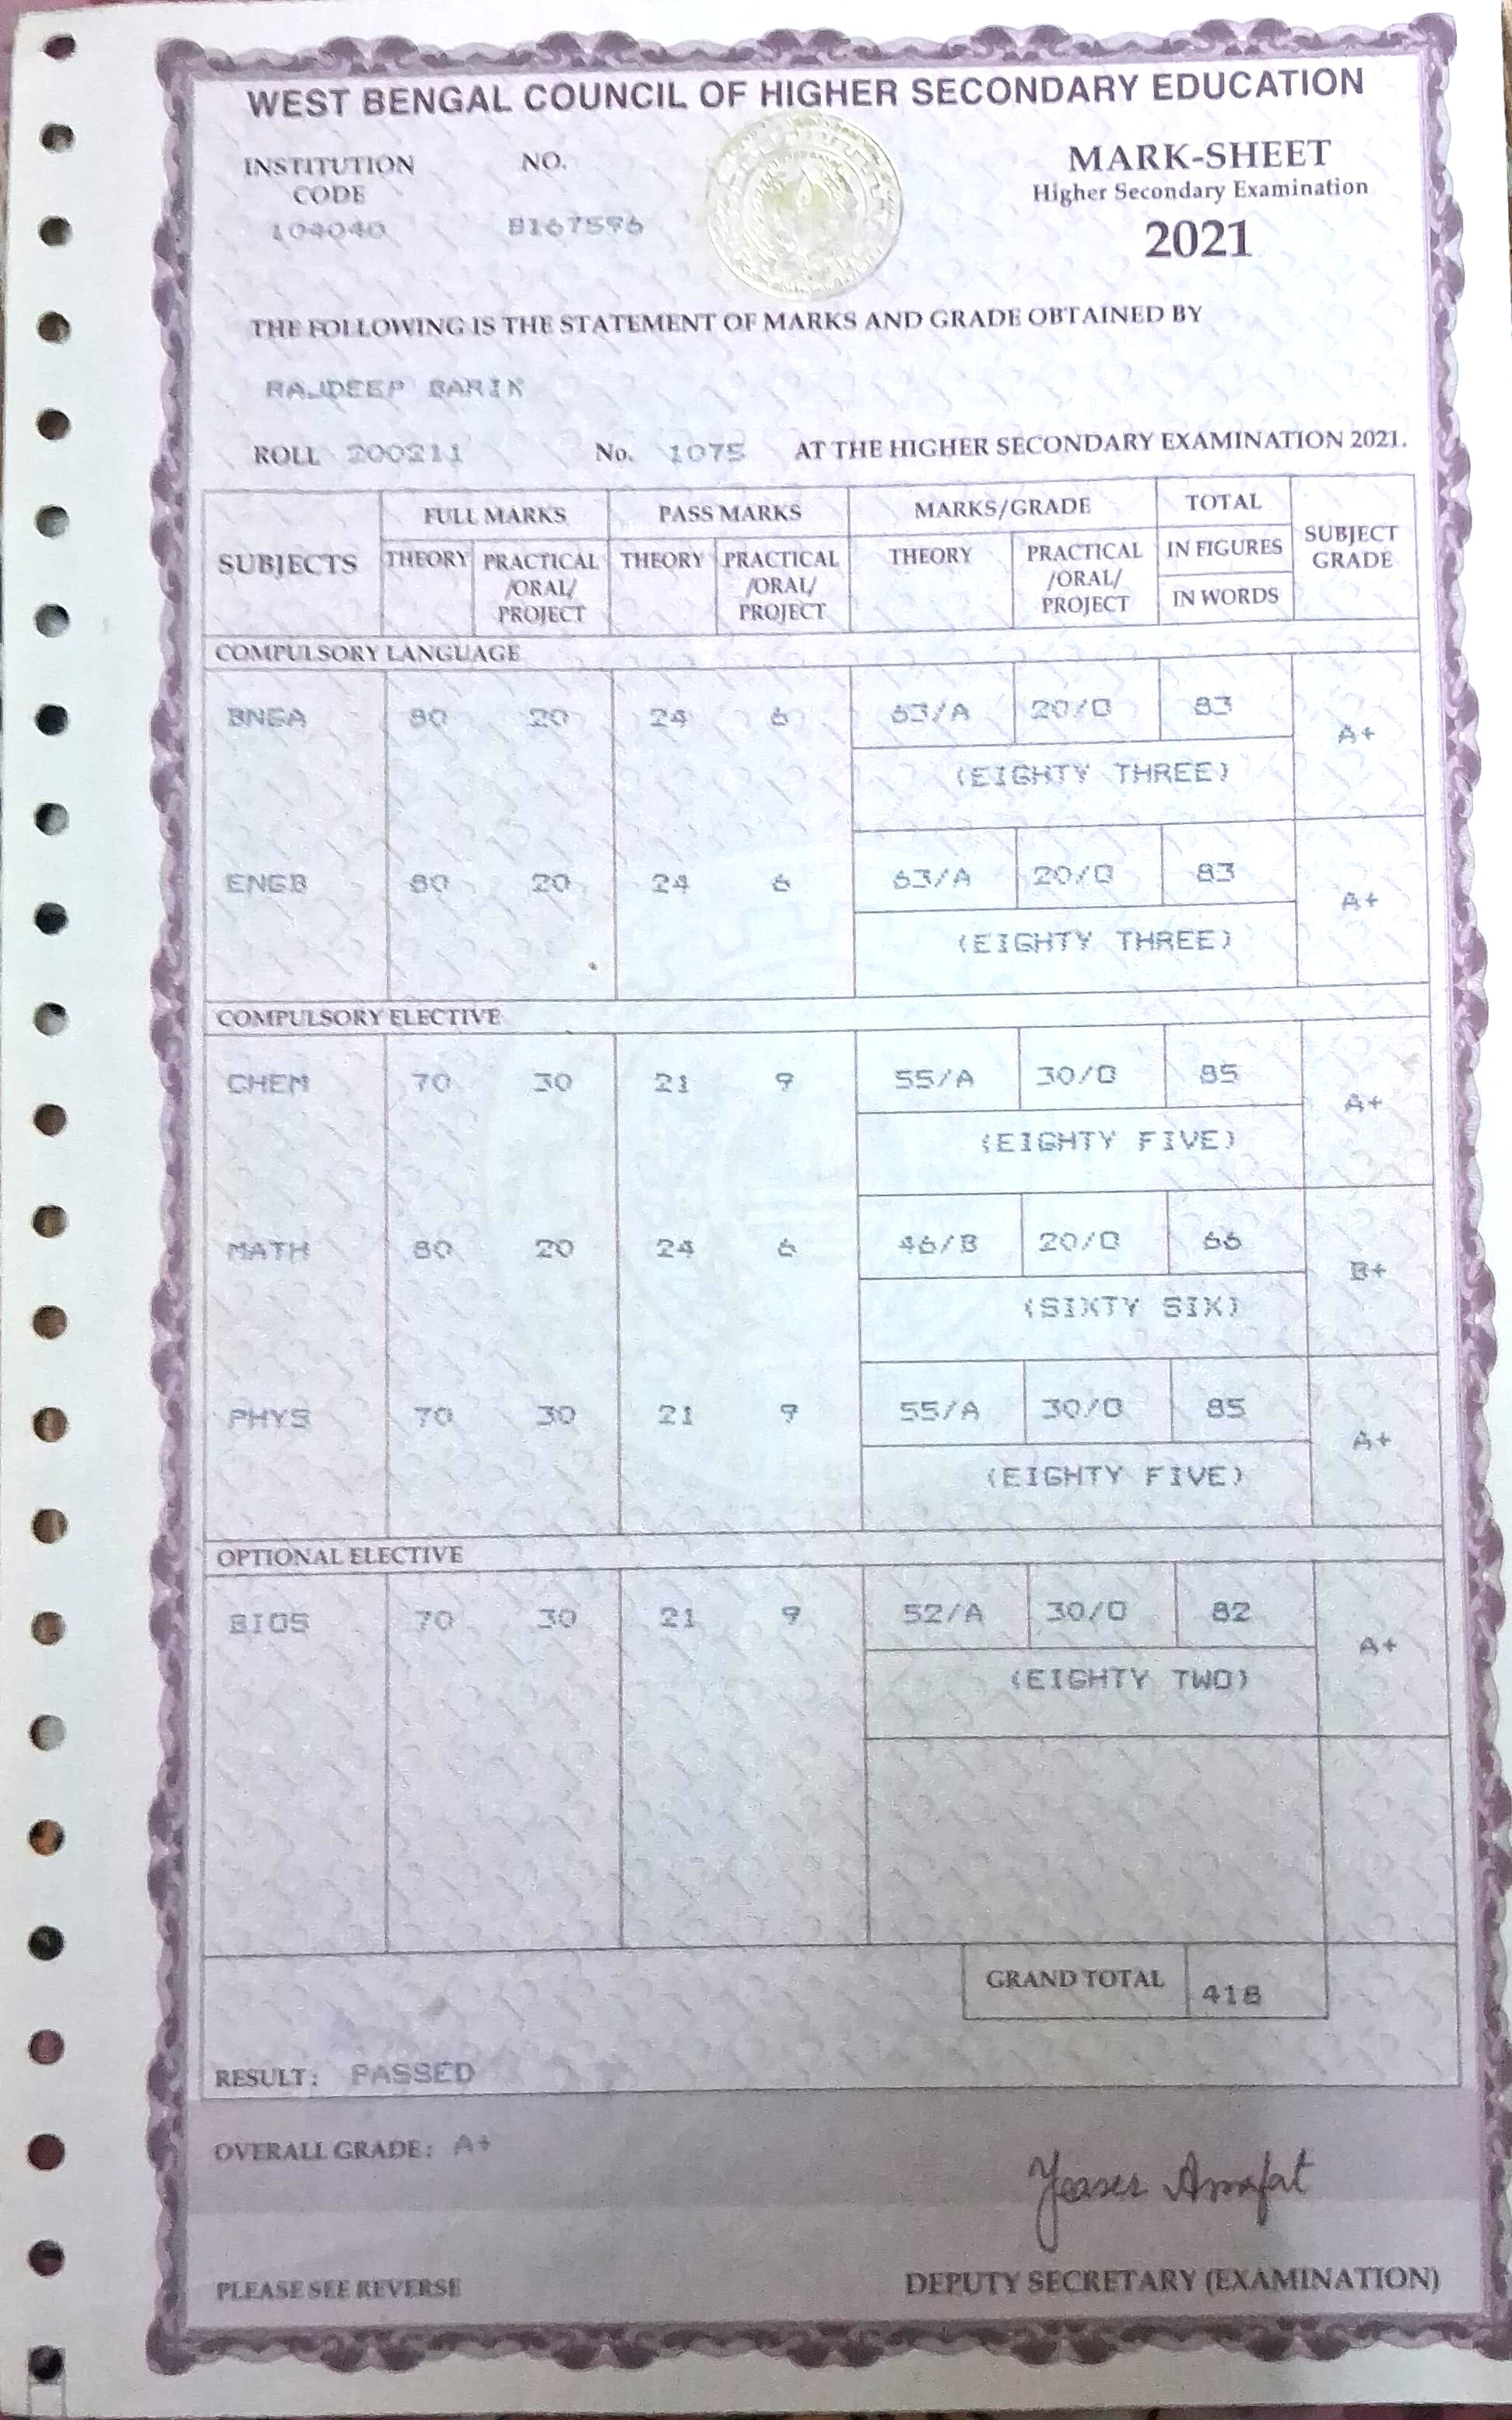 WEST BENGAL COUNCIL OF HIGHER SECONDARY EDUCATION
INSTITUTION CODE NO. MARK-SHEET
104040 8167596 Higher Secondary Examination
2021
THE FOLLOWING IS THE STATEMENT OF MARKS AND GRADE OBTAINED BY
RAJDEEP BARIK
ROLL 200211 No. 1075 AT THE HIGHER SECONDARY EXAMINATION 2021.
SUBJECTS FULL MARKS PASS MARKS MARKS/GRADE TOTAL SUBJECT GRADE
THEORY PRACTICAL /ORAL/ PROJECT THEORY PRACTICAL /ORAL/ PROJECT THEORY PRACTICAL /ORAL/ PROJECT IN FIGURES
IN WORDS
COMPULSORY LANGUAGE
BNGA 80 20 24 6 63/A 20/O 83 A+
(EIGHTY THREE)
ENGB 80 20 24 6 63/A 20/O 83 A+
(EIGHTY THREE)
COMPULSORY ELECTIVE
CHEM 70 30 21 9 55/A 30/O 85 A+
(EIGHTY FIVE)
MATH 80 20 24 6 46/B 20/O 66 B+
(SIXTY SIX)
PHYS 70 30 21 9 55/A 30/O 85 A+
(EIGHTY FIVE)
OPTIONAL ELECTIVE
BIOS 70 30 21 9 52/A 30/O 82 A+
(EIGHTY TWO)
GRAND TOTAL 418
RESULT: PASSED
OVERALL GRADE: A+
Yeaser Arrafat
PLEASE SEE REVERSE DEPUTY SECRETARY (EXAMINATION)